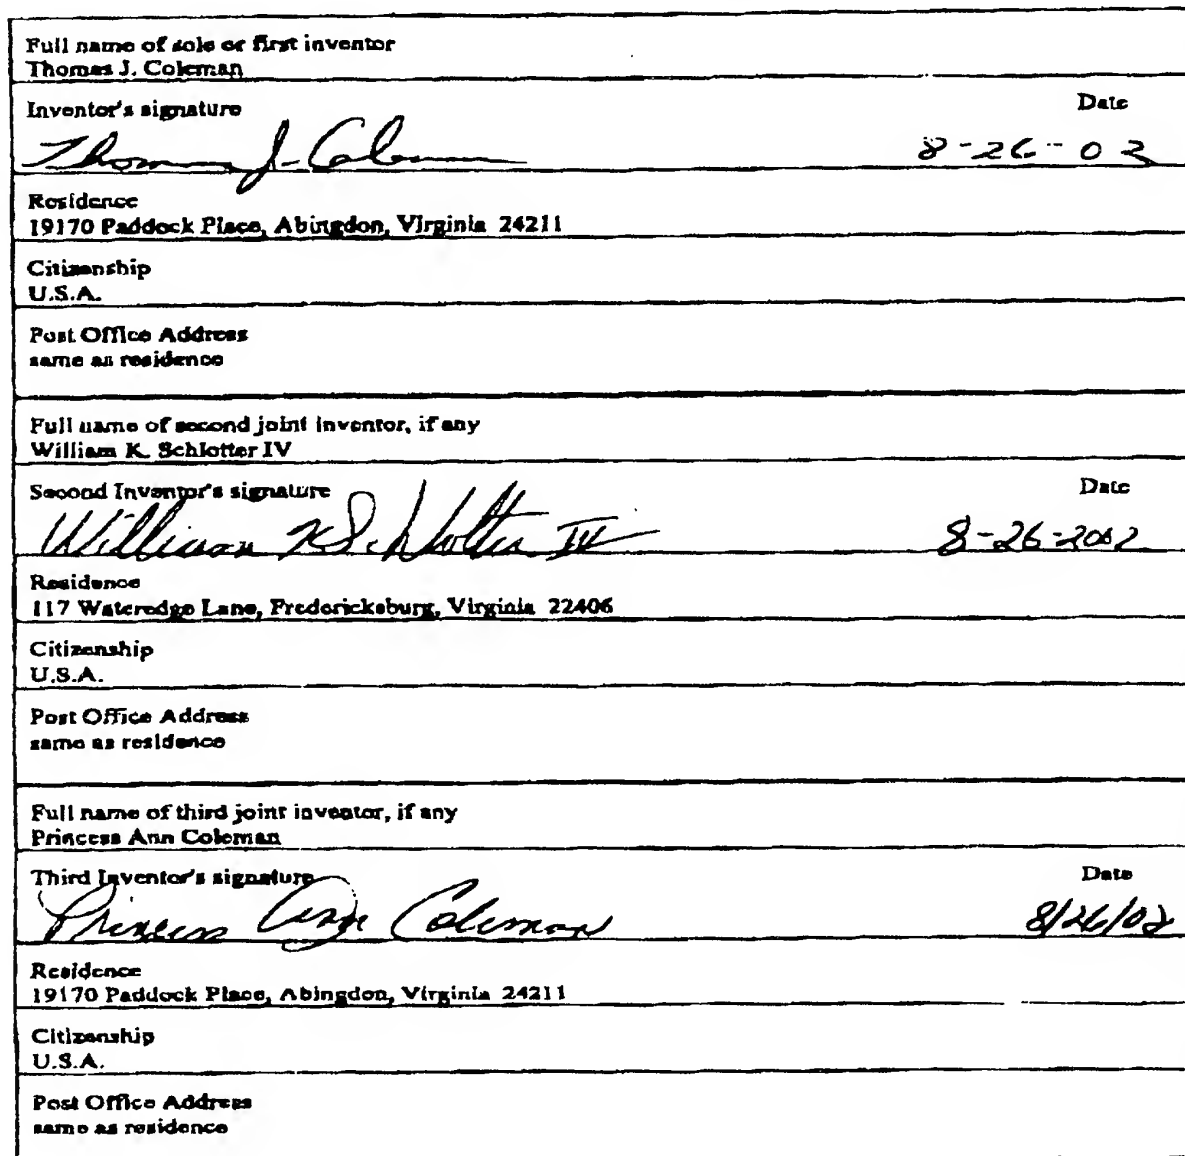 Full name of sole or first inventor
Thomas J. Coleman
Inventor's signature Date
Thomas J. Coleman 8-26-02
Residence
19170 Paddock Place, Abingdon, Virginia 24211
Citizenship
U.S.A.
Post Office Address
same as residence
Full name of second joint inventor, if any
William K. Schlotter IV
Second Inventor's signature Date
William K Schlotter IV 8-26-2002
Residence
117 Wateredge Lane, Fredericksburg, Virginia 22406
Citizenship
U.S.A.
Post Office Address
same as residence
Full name of third joint inventor, if any
Princess Ann Coleman
Third Inventor's signature Date
Princess Ann Coleman 8/26/02
Residence
19170 Paddock Place, Abingdon, Virginia 24211
Citizenship
U.S.A.
Post Office Address
same as residence